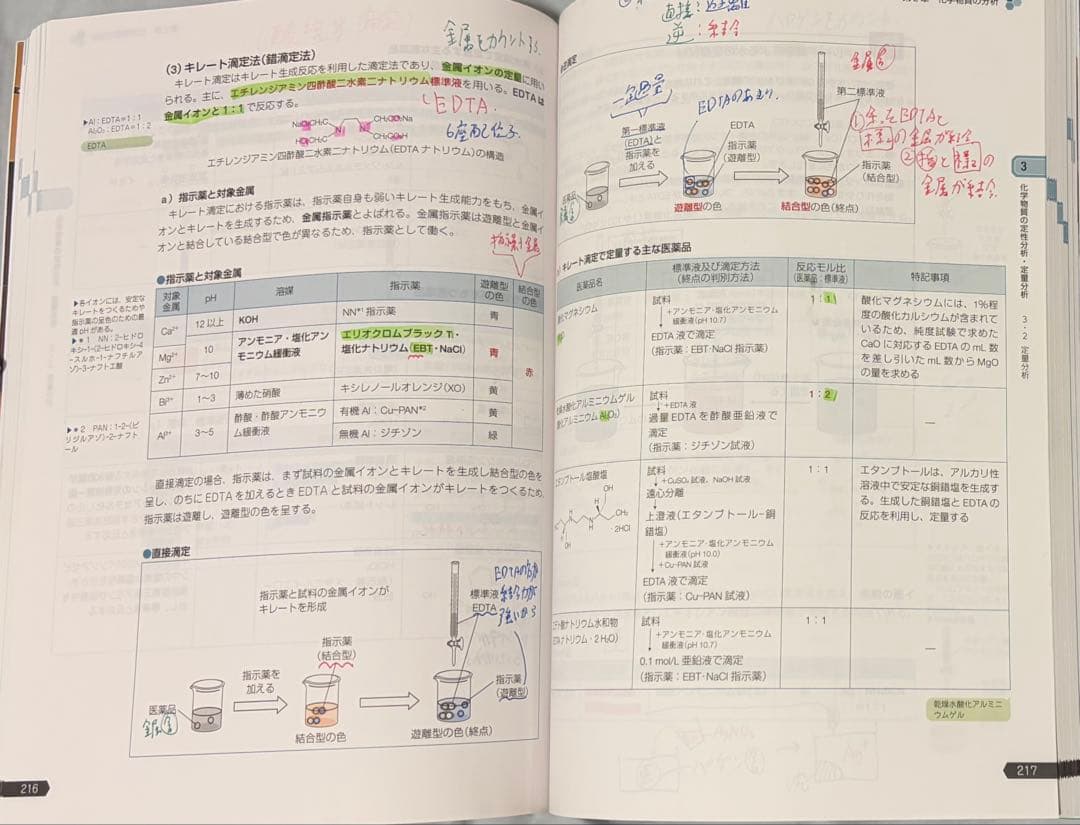 金属をカウントする.
(3) キレート滴定法(錯滴定法)
キレート滴定法はキレート生成反応を利用した滴定法であり、金属イオンの定量に用い
られる。主に、エチレンジアミン四酢酸二水素二ナトリウム標準液を用いる。EDTAは
金属イオンと1:1で反応する。
EDTA.
6座配位子.
▶Al:EDTA=1:1
Al₂O₃:EDTA=1:2
EDTA
エチレンジアミン四酢酸二水素二ナトリウム(EDTAナトリウム)の構造
a) 指示薬と対象金属
キレート滴定における指示薬は、指示薬自身も弱いキレート生成能力をもち、金属イ
オンとキレートを生成するため、金属指示薬とよばれる。金属指示薬は遊離型と金属イ
オンと結合している結合型で色が異なるため、指示薬として働く。
指示薬+金属
●指示薬と対象金属
対象金属 pH 溶媒 指示薬 遊離型の色 結合型の色
Ca²⁺ 12以上 KOH NN*¹指示薬 青 赤
Mg²⁺ 10 アンモニア・塩化アンモニウム緩衝液 エリオクロムブラックT・塩化ナトリウム(EBT・NaCl) 青
Zn²⁺ 7〜10
Bi³⁺ 1〜3 薄めた硝酸 キシレノールオレンジ(XO) 黄
Al³⁺ 3〜5 酢酸・酢酸アンモニウム緩衝液 有機Al:Cu-PAN*² 黄
無機Al:ジチゾン 緑
▶各イオンには、安定な
キレートをつくるためや
指示薬の呈色のための最
適pHがある。
▶*1 NN:2-ヒドロ
キシ-1-(2-ヒドロキシ-4-
スルホ-1-ナフチルア
ゾ)-3-ナフトエ酸
▶*2 PAN:1-2-(ピ
リジルアゾ)-2-ナフト
ール
直接滴定の場合、指示薬は、まず試料の金属イオンとキレートを生成し結合型の色を
呈し、のちにEDTAを加えるときEDTAと試料の金属イオンがキレートをつくるため、
指示薬は遊離し、遊離型の色を呈する。
●直接滴定
指示薬と試料の金属イオンが
キレートを形成
指示薬
(結合型)
指示薬を
加える
医薬品
金属
結合型の色
標準液
EDTA
EDTAの方が
結合力が
強いから
指示薬
(遊離型)
遊離型の色(終点)
216
直接:遊離
逆:結合
一定過量
第一標準液
(EDTA)と
指示薬を
加える
医薬品
EDTAのあまり.
EDTA
指示薬
(遊離型)
遊離型の色
金属
第二標準液
指示薬
(結合型)
結合型の色(終点)
金属が結合
キレート滴定で定量する主な医薬品
医薬品名 標準液及び滴定方法(終点の判別方法) 反応モル比(医薬品:標準液) 特記事項
酸化マグネシウム
試料
+アンモニア・塩化アンモニウム
緩衝液(pH 10.7)
EDTA液で滴定
(指示薬:EBT・NaCl指示薬)
1:1
酸化マグネシウムには、1%程
度の酸化カルシウムが含まれて
いるため、純度試験で求めた
CaOに対応するEDTAのmL数
を差し引いたmL数からMgO
の量を求める
乾燥水酸化アルミニウムゲル
(酸化アルミニウム Al₂O₃)
試料
+EDTA液
過量EDTAを酢酸亜鉛液で
滴定
(指示薬:ジチゾン試液)
1:2
—
エタンブトール塩酸塩
試料
+CuSO₄試液、NaOH試液
遠心分離
上澄液(エタンブトール-銅
錯塩)
+アンモニア・塩化アンモニウム
緩衝液(pH 10.0)
+Cu-PAN試液
EDTA液で滴定
(指示薬:Cu-PAN試液)
1:1
エタンブトールは、アルカリ性
溶液中で安定な銅錯塩を生成す
る。生成した銅錯塩とEDTAの
反応を利用し、定量する
・2HCl
エデト酸ナトリウム水和物
(EDTAナトリウム・2H₂O)
試料
+アンモニア・塩化アンモニウム
緩衝液(pH 10.7)
0.1 mol/L 亜鉛液で滴定
(指示薬:EBT・NaCl指示薬)
1:1
—
乾燥水酸化アルミニ
ウムゲル
3
化学物質の定性分析・定量分析 3・2 定量分析
217